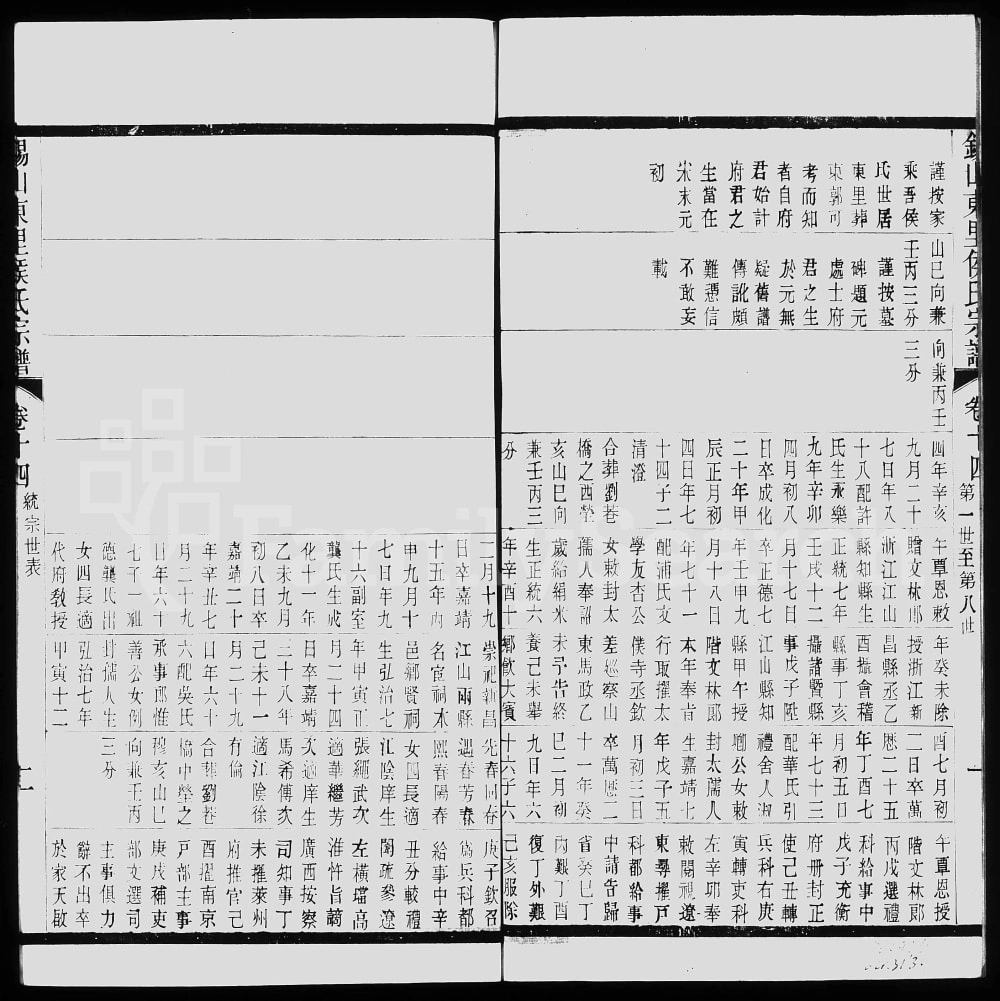 錫山東里侯氏宗譜 卷十四 第一世至第八世 一
謹按家
乘吾侯
氏世居
東里葬
東郭可
考而知
者自府
君始計
府君之
生當在
宋末元
初
山巳向兼
壬丙三分
謹按墓
碑題元
處士府
君之生
於元無
疑舊譜
傳訛頗
難憑信
不敢妄
載
向兼丙壬
三分
四年辛亥
九月二十
七日年八
十八配許
氏生永樂
九年辛卯
四月初八
日卒成化
二十年甲
辰正月初
四日年七
十四子二
清澄
合葬劉巷
橋之西塋
亥山巳向
兼壬丙三
分
午覃恩敕
贈文林郎
浙江江山
縣知縣生
正統七年
壬戌十二
月十七日
卒正德七
年壬申九
月十日
年七十一
配浦氏文
學友杏公
女敕贈太
孺人奉詔
歲給絹米
生正統六
年辛酉十
年癸未除
授浙江新
昌縣知縣
酉攝會稽
縣事丁亥
攝諸暨縣
事戊子陞
江山縣知
縣甲午授
階文林郎
本年奉旨
行取撰太
僕寺丞欽
差巡察山
東馬政乙
未予告終
養己未舉
鄉飲大賓
酉七月初
二日卒萬
曆二十五
年丁酉七
月初五日
年七十三
配華氏引
禮舍人淑
公女敕
封太孺人
生嘉靖七
年戊子五
月初三日
卒萬曆二
十一年癸
巳二月初
九日年六
十六子六
午覃恩授
階文林郎
丙戌選禮
科給事中
戊子充衡
府冊封正
使己丑轉
兵科右庚
寅轉吏科
左辛卯奉
敕閱視遼
東尋擢戶
科都給事
中請告歸
省癸巳丁
內艱丁酉
復丁外艱
己亥服除
二月十九
日卒嘉靖
十五年丙
申九月十
七日年九
十六副室
龔氏生成
化十一年
乙未九月
初八日卒
嘉靖二十
年辛丑七
月二十九
日年六十
七子一祉
德龔氏出
女四長適
代府教授
崇祀新昌
江山兩縣
名宦祠本
邑鄉賢祠
生弘治七
年甲寅正
月二十四
日卒嘉靖
三十八年
己未十一
月二十九
日年六十
六配吳氏
承事郎惟
善公女例
封孺人生
弘治七年
甲寅十二
先春同春
遇春芳春
熙春陽春
女四長適
江陰庠生
張繩武次
適華繼芳
次適庠生
馬希傅次
適江陰徐
有倫
合葬劉巷
橋中塋之
穆亥山巳
向兼壬丙
三分
庚子欽召
為兵科都
給事中辛
丑分較禮
闈疏參遼
左橫璫高
淮忤旨謫
廣西按察
司知事丁
未擢萊州
府推官己
酉擢南京
戶部主事
庚戌補吏
部文選司
主事俱力
辭不出卒
於家天啟
錫山東里侯氏宗譜 卷十四 統宗世表